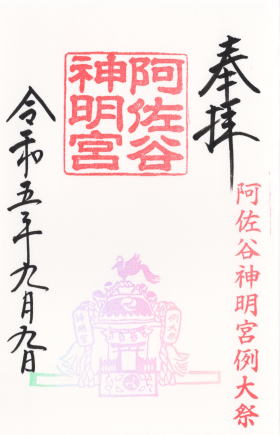 奉拝
阿佐谷神明宮例大祭
阿佐谷
神明宮
令和五年九月九日